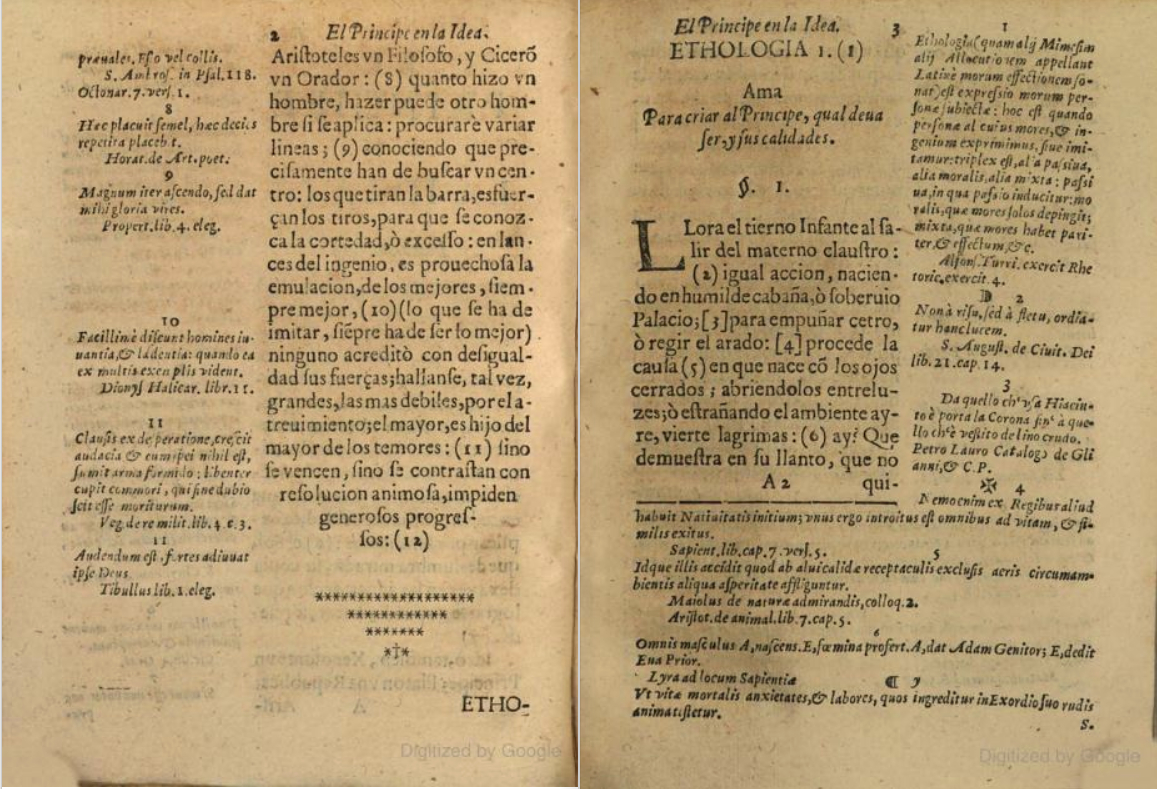 2 El Principe en la Idea.
præuales. Eſto vel collis.
S. Ambroſ. in Pſal. 118.
Octonar. 7. verſ. 1.
8
Hæc placuit ſemel, hæc decies
repetita placeb t.
Horat. de Art. poet.
9
Magnum iter aſcendo, ſed dat
mihi gloria vires.
Propert. lib. 4. eleg.
10
Facillimè diſcunt homines iu-
uantia, & lædentia: quando ea
ex multis exemplis vident.
Dionyſ Halicar. libr. 11.
11
Clauſis ex deſperatione, creſcit
audacia & cum ſpei nihil eſt,
ſumit arma formido: libenter
cupit commori, qui ſine dubio
ſcit eſſe moriturum.
Veg. de re milit. lib. 4. c. 3.
11
Audendum eſt, fortes adiuuat
ipſe Deus
Tibullus lib. 1. eleg.
Ariſtoteles vn Filoſofo, y Cicerõ
vn Orador: (8) quanto hizo vn
hombre, hazer puede otro hom-
bre ſi ſe aplica: procurarè variar
lineas; (9) conociendo que pre-
ciſamente han de buſcar vn cen-
tro: los que tiran la barra, esfuer-
çan los tiros, para que ſe conoz-
ca la cortedad, ò exceſſo: en lan-
ces del ingenio, es prouechoſa la
emulacion, de los mejores, ſiem-
pre mejor, (10) (lo que ſe ha de
imitar, ſiẽpre ha de ſer lo mejor)
ninguno acreditò con deſigual-
dad ſus fuerças; hallanſe, tal vez,
grandes, las mas debiles, por el a-
treuimiento; el mayor, es hijo del
mayor de los temores: (11) ſino
ſe vencen, ſino ſe contraſtan con
reſolucion animoſa, impiden
generoſos progreſ-
ſos: (12)
*******************
************
*******
*I*
ETHO-
Digitized by Google
El Principe en la Idea. 3
ETHOLOGIA 1. (1)
Ama
Para criar al Principe, qual deua
ſer, y ſus calidades.
§. 1.
LLora el tierno Infante al ſa-
lir del materno clauſtro:
(2) igual accion, nacien-
do en humilde cabaña, ò ſoberuio
Palacio; [3] para empuñar cetro,
ò regir el arado: [4] procede la
cauſa (5) en que nace cõ los ojos
cerrados; abriendolos entrelu-
zes; ò eſtrañando el ambiente ay-
re, vierte lagrimas: (6) ay! Que
demueſtra en ſu llanto, que no
A 2 qui-
1
Ethologia (quam alij Mimeſim
alij Allocutionem appellant
Latinè morum effectionem ſo-
nat) eſt expreſſio morum per-
ſonæ ſubiectæ: hoc eſt quando
perſonæ alicuius mores, & in-
genium exprimimus, ſiue imi-
tamur: triplex eſt, alia paſsiua,
alia moralis, alia mixta: paſsi
ua, in qua paſsio inducitur: mo
ralis, quæ mores ſolos depingit;
mixta, quæ mores habet pari-
ter, & effectum, &c.
Alfonſ. Turri. exercit Rhe
toric. exercit. 4.
D 2
Non à riſu, ſed à fletu, ordia-
tur hanc lucem.
S. Auguſt. de Ciuit. Dei
lib. 21. cap. 14.
3
Da quello ch' vſa Hiacin-
to è porta la Corona ſin' à que-
llo ch'è veſtito de lino crudo.
Petro Lauro Catalogo de Gli
anni, & C. P.
✠ 4
Nemo enim ex Regibur aliud
habuit Natiuitatis initium; vnus ergo introitus eſt omnibus ad vitam, & ſi-
milis exitus.
Sapient. lib. cap. 7. verſ. 5.
5
Idque illis accidit quod ab alui calidæ receptaculis excluſis aeris circumam-
bientis aliqua aſperitate affliguntur.
Maiolus de naturæ admirandis, colloq. 2.
Ariſtot. de animal. lib. 7. cap. 5.
6
Omnis maſculus A, naſcens. E, fœmina profert. A, dat Adam Genitor; E, dedit
Eua Prior.
Lyra ad locum Sapientiæ
¶ 7
Vt vitæ mortalis anxietates, & labores, quos ingreditur in Exordio ſuo rudis
anima teſtetur.
S.
Digitized by Google